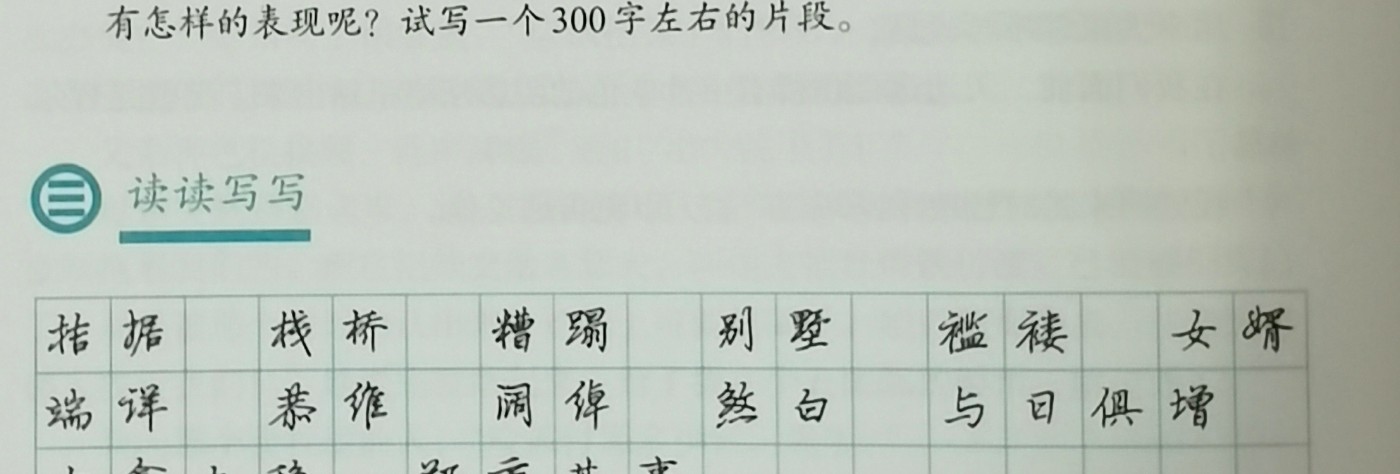 有怎样的表现呢？试写一个300字左右的片段。
读读写写
拮据 栈桥 糟蹋 别墅 褴褛 女婿
端详 恭维 阔绰 煞白 与日俱增